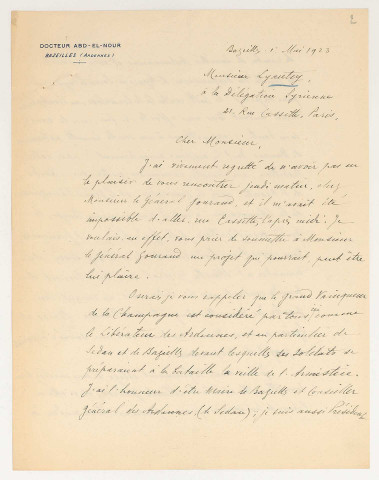 2
DOCTEUR ABD-EL-NOUR
BAZEILLES (ARDENNES)
Bazeilles 1 Mai 1923
Monsieur Lyautey,
à la Délégation Syrienne
21 Rue Cassette, Paris.
Cher Monsieur,
J'ai vivement regretté de n'avoir pas eu
le plaisir de vous rencontrer jeudi matin, chez
Monsieur le Général Gouraud, et il m'avait été
impossible d'aller, rue Cassette, l'après midi. Je
voulais en effet, vous prier de soumettre à Monsieur
le Général Gouraud un projet qui pourrait peut être
lui plaire.
Oserai-je vous rappeler que le grand Vainqueur
de la Champagne est considéré par tous comme
le Libérateur des Ardennes, et en particulier de
Sedan et de Bazeilles devant lesquelles ses soldats se
préparaient à la bataille la veille de l'Armistice.
J'ai l'honneur d'être Maire de Bazeilles et Conseiller
Général des Ardennes (de Sedan); je suis aussi Président